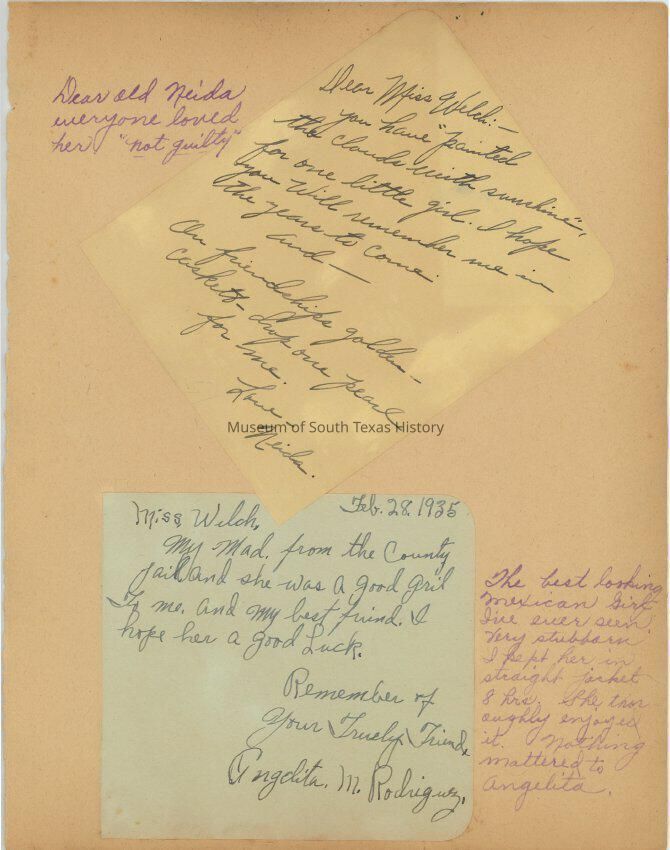 Dear old Neida
everyone loved
her. "not guilty"
Dear Miss Welch:—
you have "painted
the clouds with sunshine",
for one little girl. I hope
you will remember me in
the years to come.
and—
On friendships golden—
caskets— drop one pearl
for me.
Love—
Neida.
Museum of South Texas History
Feb. 28. 1935
Miss, Welch,
My Mad. from the County
Jail and she was a good gril
To me. and my best friend. I
hope her a good Luck.
Remember of
Your Truely Friend
Angelita. M. Rodriguez.
The best looking
Mexican Girl
I've ever seen.
Very stubborn
I kept her in
straight jacket
8 hrs. She thor
oughly enjoyed
it. Nothing
mattered to
Angelita.